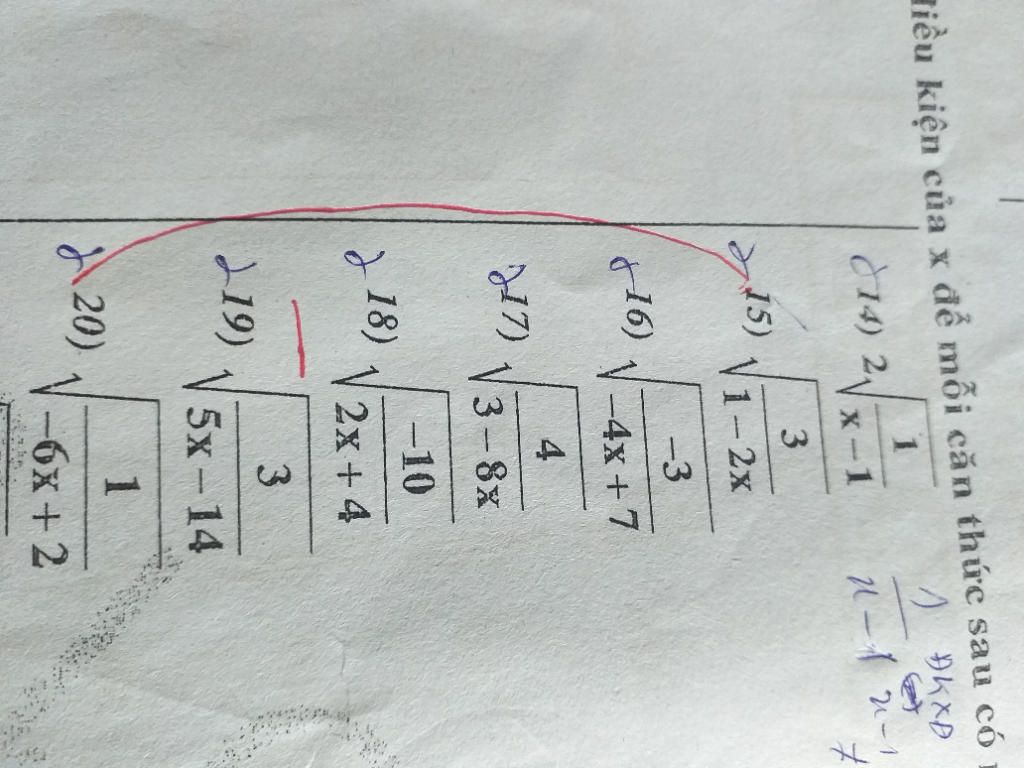 kiện của x để mỗi căn thức sau có
14) 2√(1/(x−1))
15) √(3/(1−2x))
16) √(−3/(−4x+7))
17) √(4/(3−8x))
18) √(−10/(2x+4))
19) √(3/(5x−14))
20) √(1/(−6x+2))
ĐKXĐ